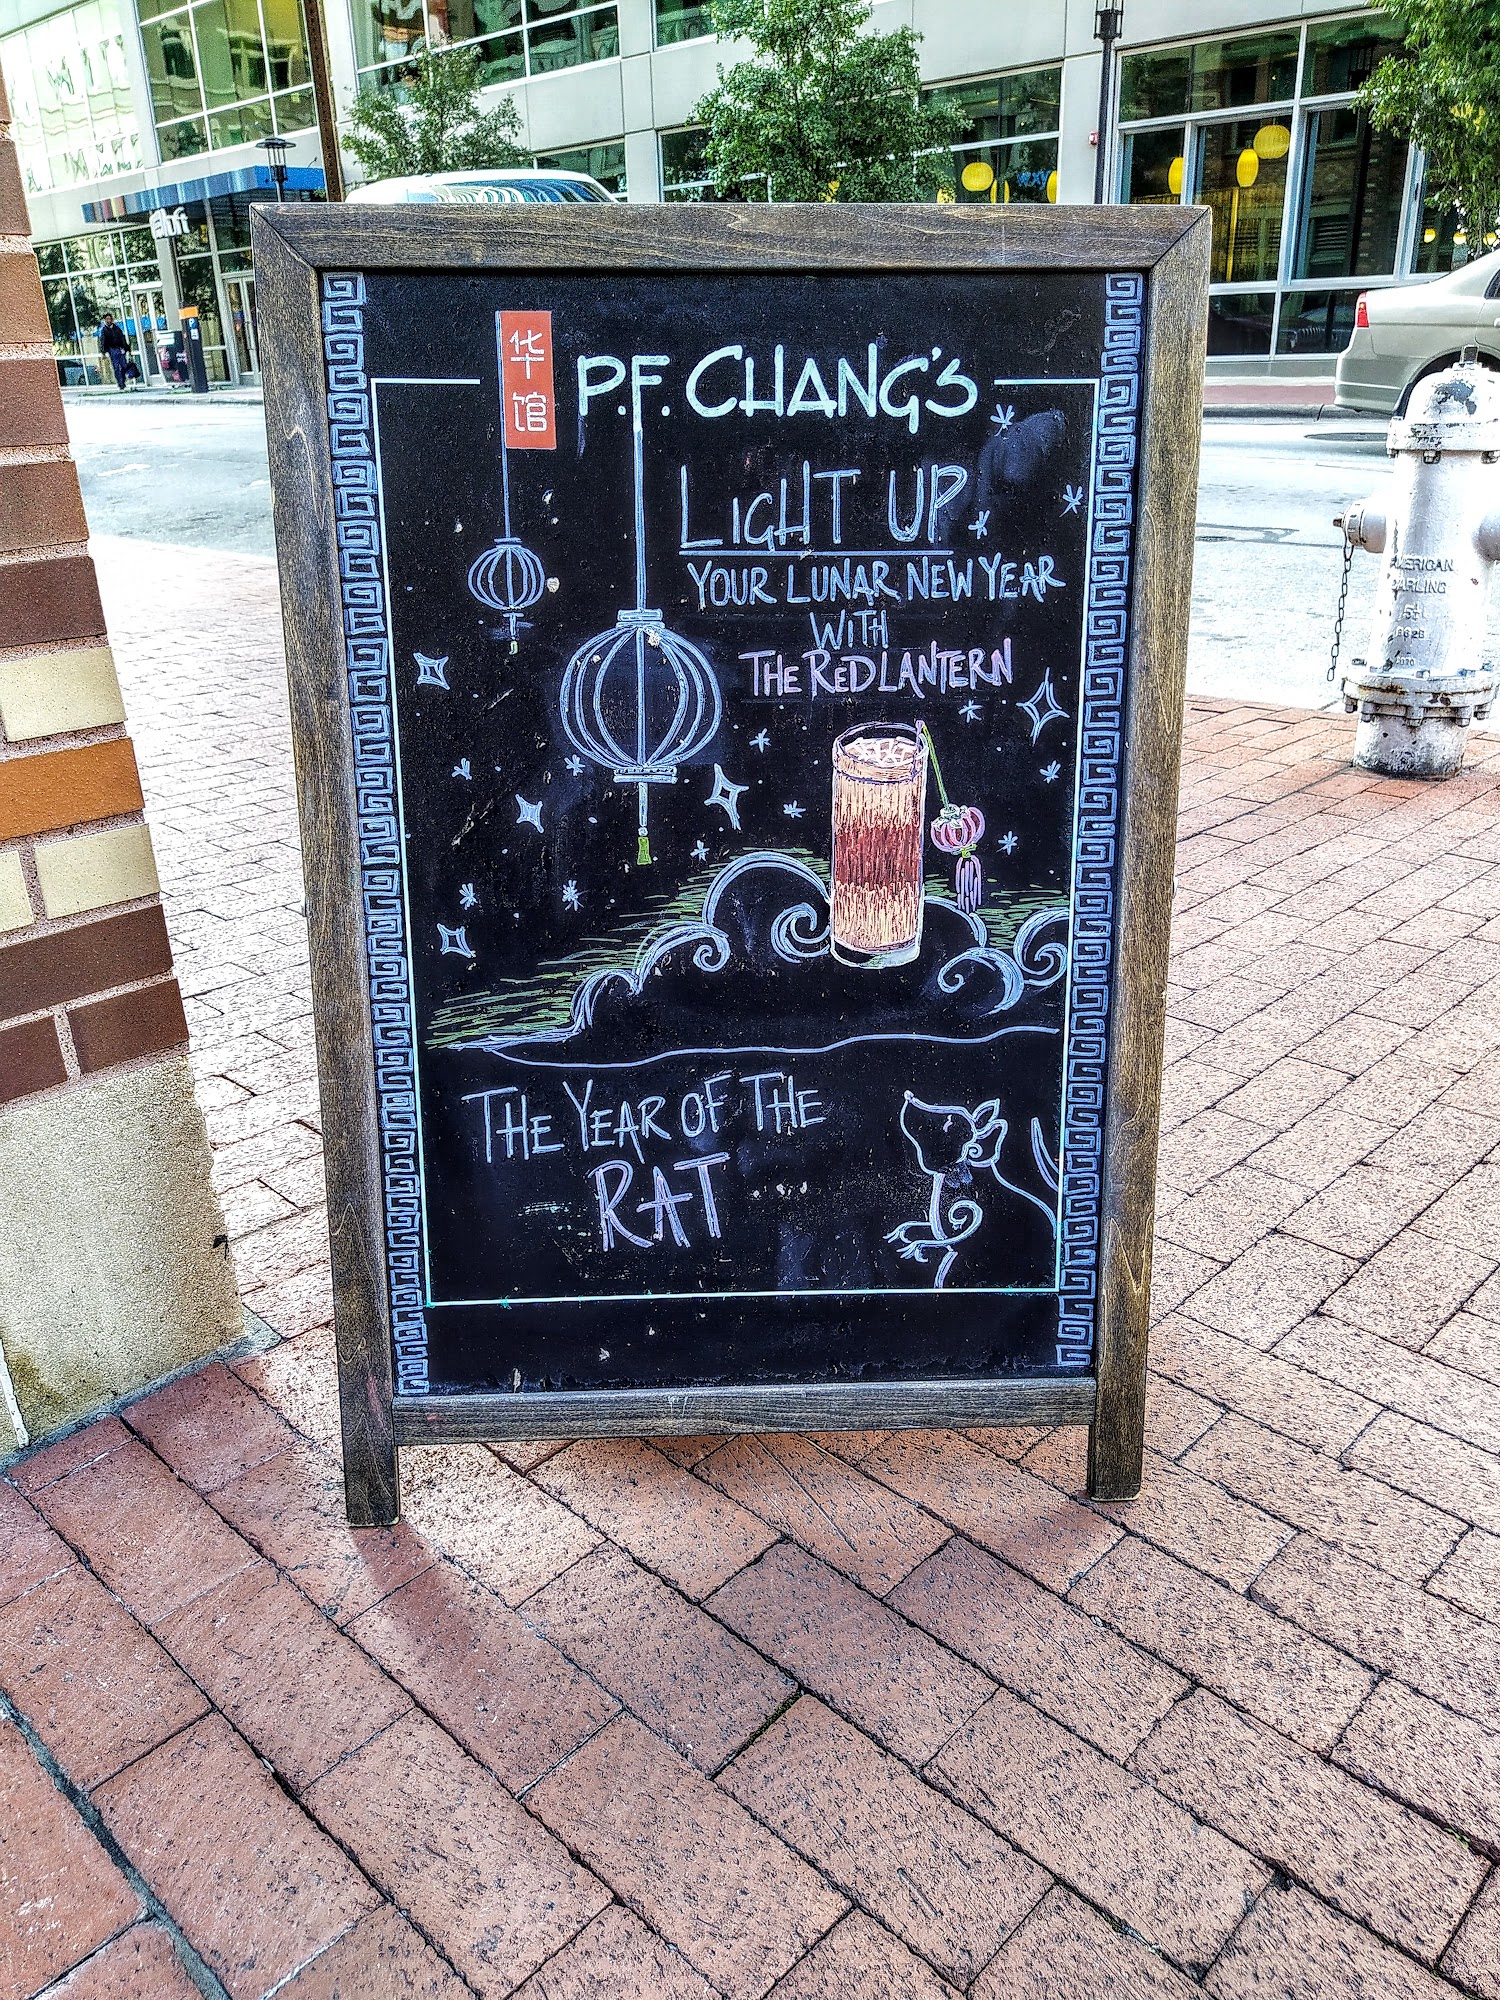 华
馆
P.F. CHANG'S
LIGHT UP
YOUR LUNAR NEW YEAR
WITH
THE RED LANTERN
THE YEAR OF THE
RAT
aloft
AMERICAN
DARLING